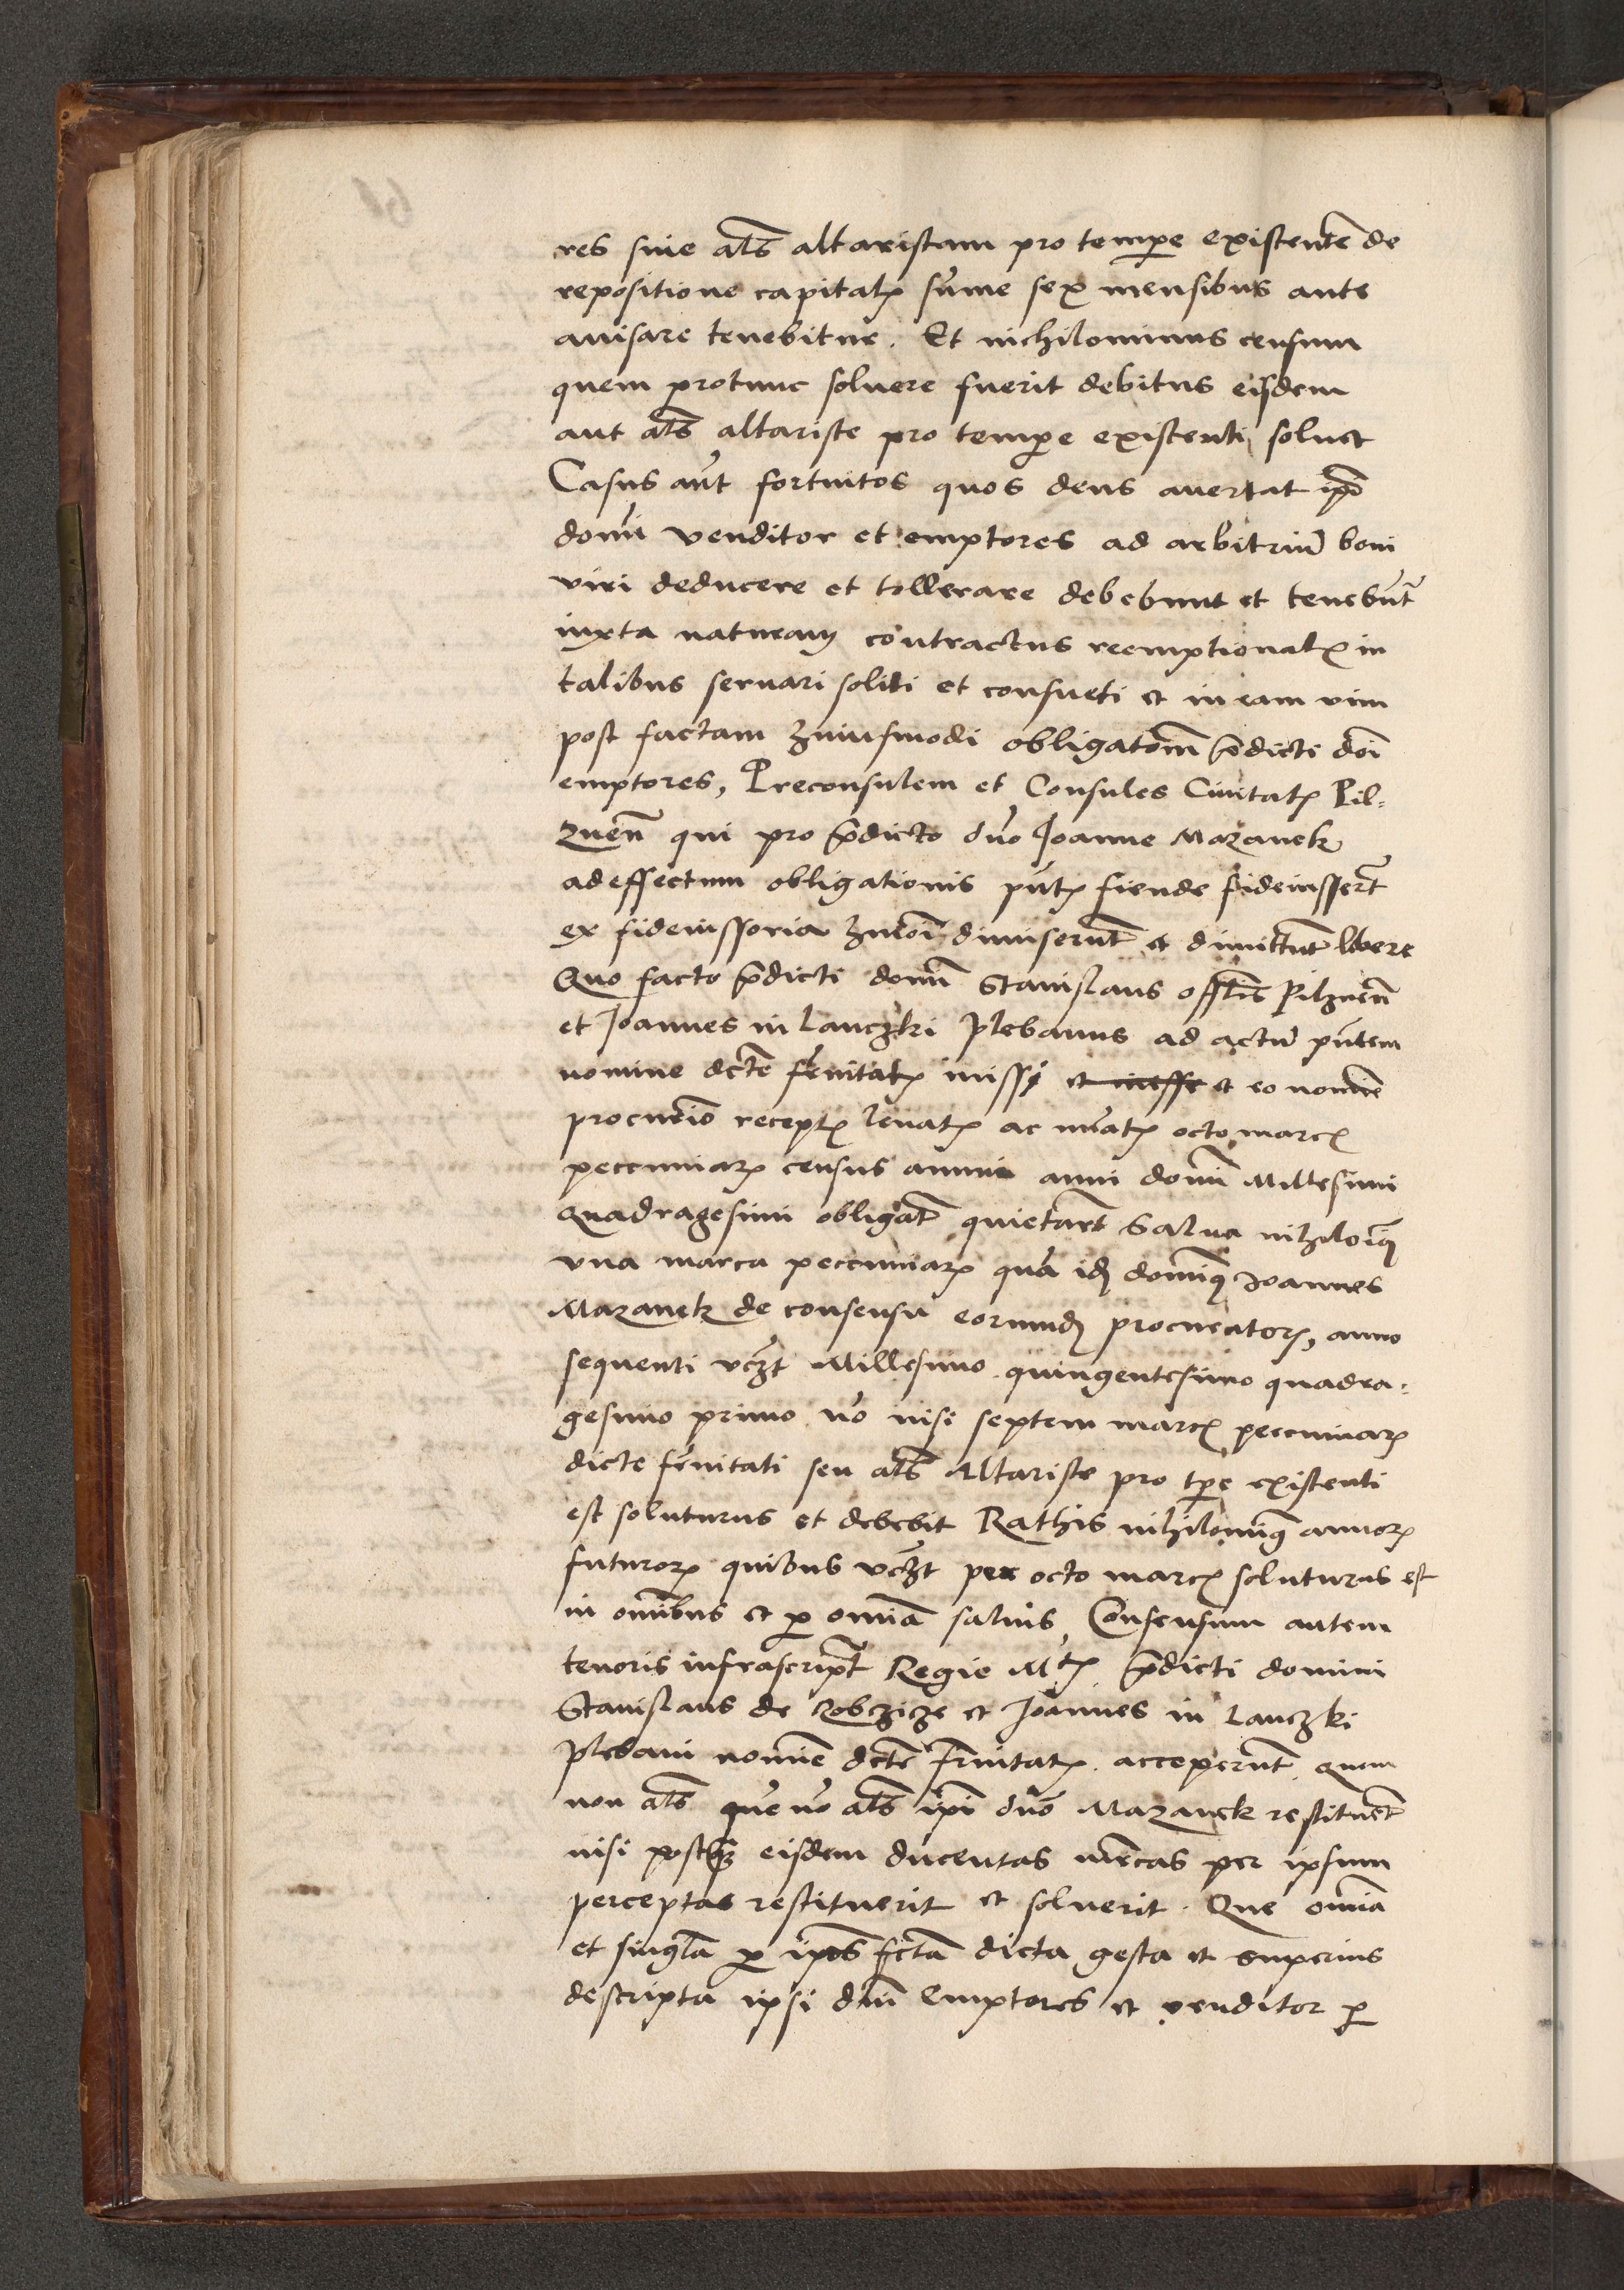 res siue als̃ altaristam pro temp̱e existentẽ de
repositione capitalꝭ sũme sex mensibus ante
auisare tenebitur. Et nichilominus censum
quem protunc soluere fuerit debitus eisdem
aut als̃ altariste pro temp̱e existenti soluet
Casus aũt fortuitos quos deus auertat ip̃i
domĩ venditor et emptores ad arbitriũ boni
viri deducere et tollerare debebunt et tenebũt
iuxta naturam contractus reemptionalꝭ in
talibus seruari soliti et consueti et in eam vim
post factam huiusmodi obligatõem p̃dicti doĩ
emptores, Preconsulem et Consules Ciuitatꝭ Pil-
znen̄ qui pro p̃dicto dño Joanne Mazanek
ad effectum obligationis p̃ntꝭ fiende fideiusserũt
ex fideiussoria hmõi dimiserũt et dimittũt libere
Quo facto p̃dicti domĩ Stanislaus offlĩs Pilznen̄
et Joannes in Lanczki Plebanus ad actũ p̃ntem
nomine dctẽ frñitatꝭ missi et eo nomine
procurio receptꝭ leuatꝭ ac nũatꝭ octo marcꝭ
pecuniarꝭ census annui anni domĩ Millesimi
Quadragesimi obligat̃ quietarũt Salua nihiloĩꝰ
vna marca pecuniarꝭ quã idẽ domĩꝰ Joannes
Mazanek de consensu eorumdẽ procuratorꝭ, anno
sequenti vczt Millesimo quingentesimo quadra-
gesimo primo nõ nisi septem marcꝭ pecuniarꝭ
dicte frñitati seu als̃ Altariste pro tp̱e existenti
est soluturus et debebit Rathis nihilomiꝰ annorꝭ
futurorꝭ quibus vczt per octo marcꝭ soluturus est
in omĩbus et ꝑ omĩa saluis, Consensum autem
tenoris infrascript̃ Regie Mtꝭ p̃dicti domini
Stanislaus de Robczicze et Joannes in Lanczki
Plebani nomĩe dctẽ frñitatꝭ acceperũt quem
non als̃ que uo als̃ ip̃i dño Mazanek restituẽt
nisi postqꝫ eisdem ducentas mr̃cas per ipsum
perceptas restituerit et soluerit. Que omĩa
et singl̃a ꝑ ip̃os fctã dicta gesta et superius
descripta ipsi dñi Emptores et venditor ꝑ